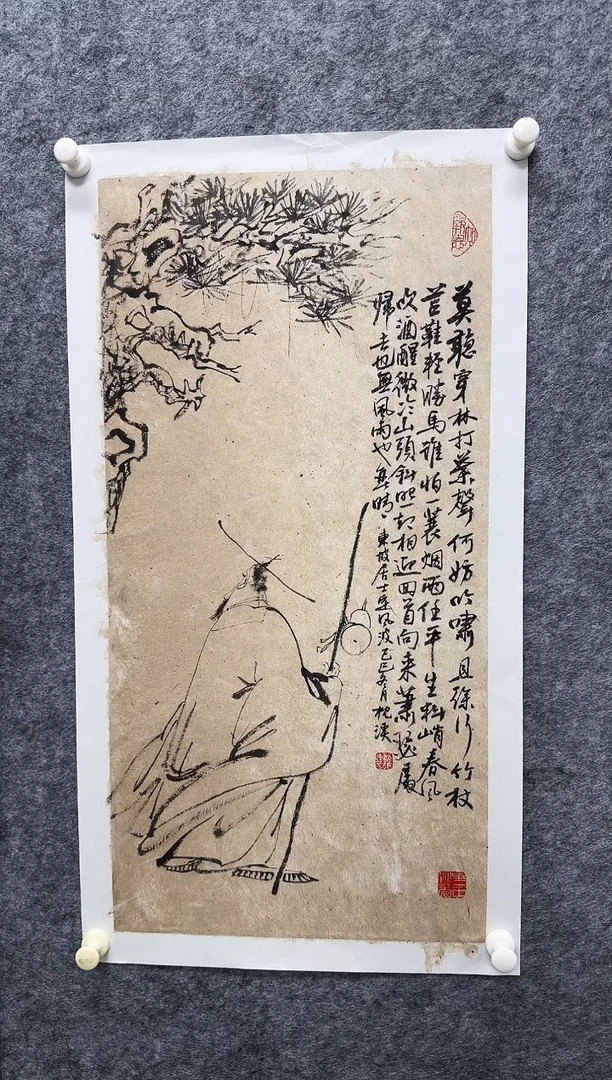 莫聽穿林打葉聲何妨吟嘯且徐行竹杖
芒鞋輕勝馬誰怕一蓑烟雨任平生料峭春風
吹酒醒微冷山頭斜照却相迎回首向來蕭瑟處
歸去也無風雨也無晴東坡居士定風波乙巳冬月枕溪